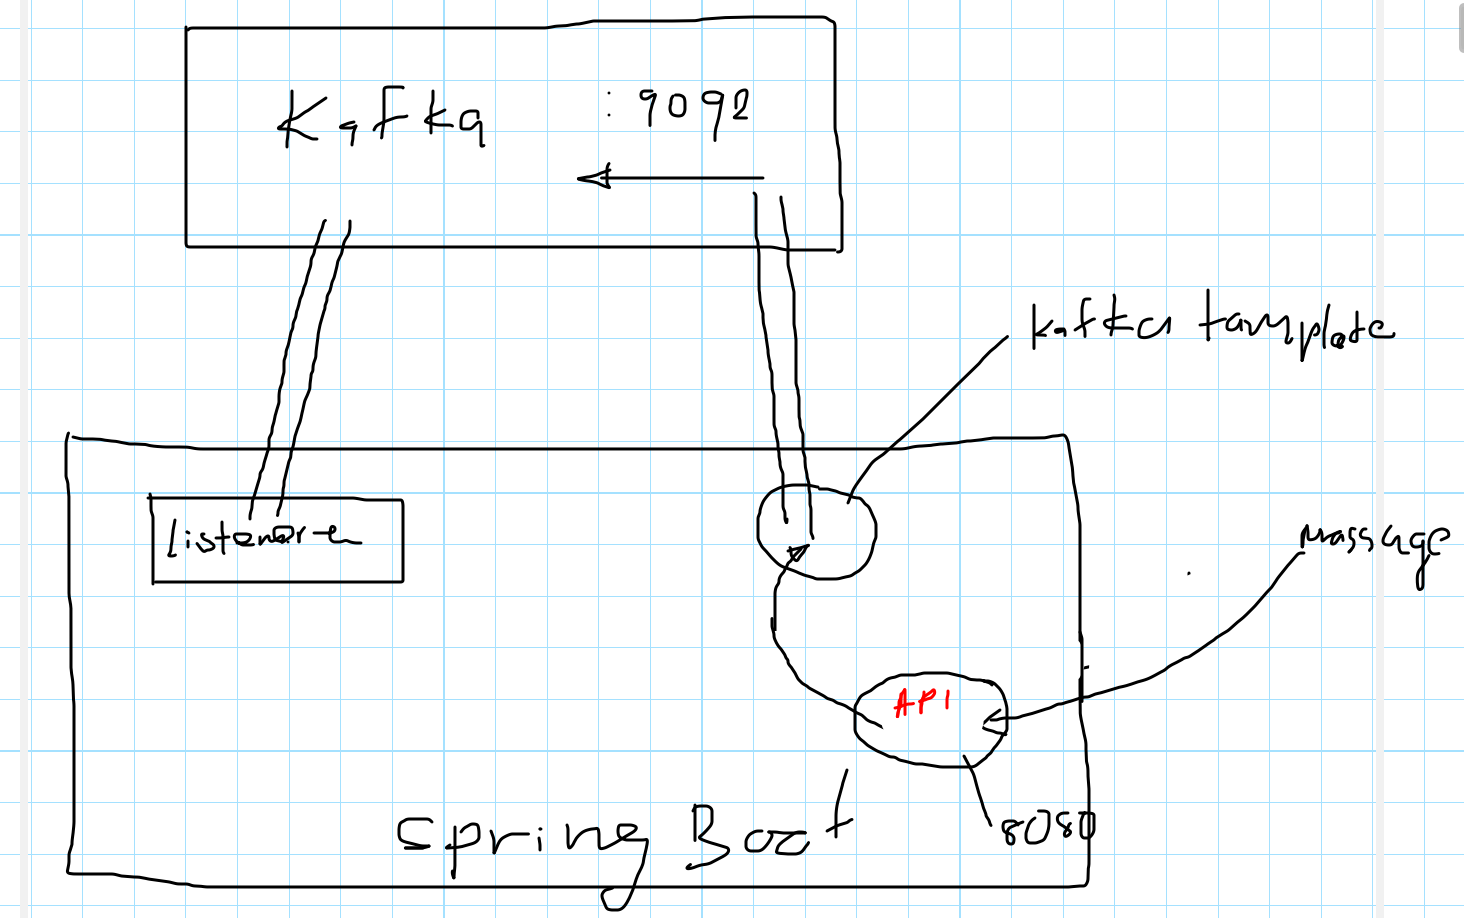 Kafka :9092
kafka tamplate
listenere
massage
API
Spring Boot
8080